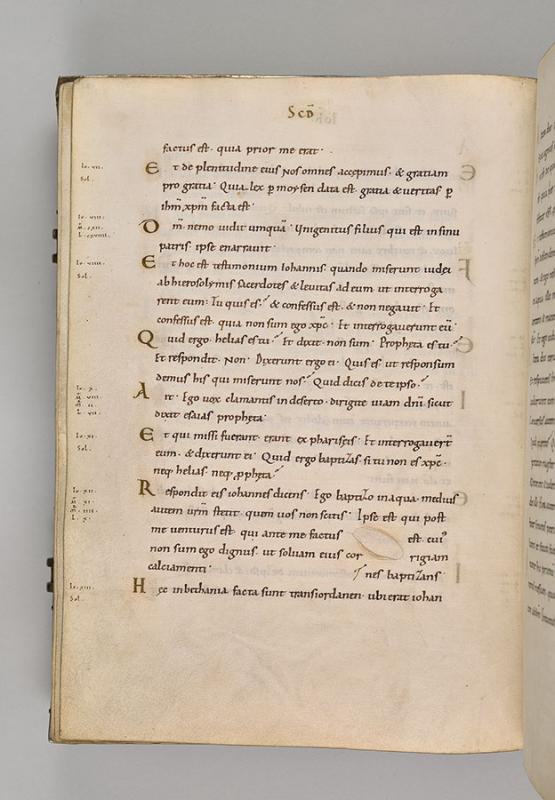 SCD̄
factus est · quia prior me erat ·
Et de plenitudine eius nos omnes accepimus · & gratiam
pro gratia · Quia lex p moysen data est · gratia & veritas p
ihm̄ xpm̄ facta est ·
Dm̄ nemo uidit umquā · Vnigenitus filius qui est in sinu
patris ipse enarrauit ·
Et hoc est testimonium iohannis · quando miserunt iudei
ab hierosolymis sacerdotes & leuitas ad eum · ut interroga
rent eum · Tu quis es · & confessus est · & non negauit · Et
confessus est · quia non sum ego xpc̄ · Et interrogauerunt eū ·
Quid ergo · helias es tu · Et dixit · non sum · Propheta es tu ·
Et respondit · Non · Dixerunt ergo ei · Quis es · ut responsum
demus his qui miserunt nos · Quid dicis de te ipso ·
Ait · Ego uox clamantis in deserto · dirigite uiam dn̄i · sicut
dixit esaias propheta ·
Et qui missi fuerant · erant ex pharisęis · Et interrogauert̄
eum · & dixerunt ei · Quid ergo baptizas · si tu non es xpc̄ ·
neq; helias · neq; ppheta ·
Respondit eis iohannes dicens · Ego baptizo in aqua · medius
autem ur̄m stetit · quem uos non scitis · Ipse est qui post
me venturus est · qui ante me factus est · cui᾿
non sum ego dignus · ut soluam eius cor rigiam
calciamenti · nes baptizans ·
Hęc in bethania facta sunt trans iordanen · ubi erat iohan